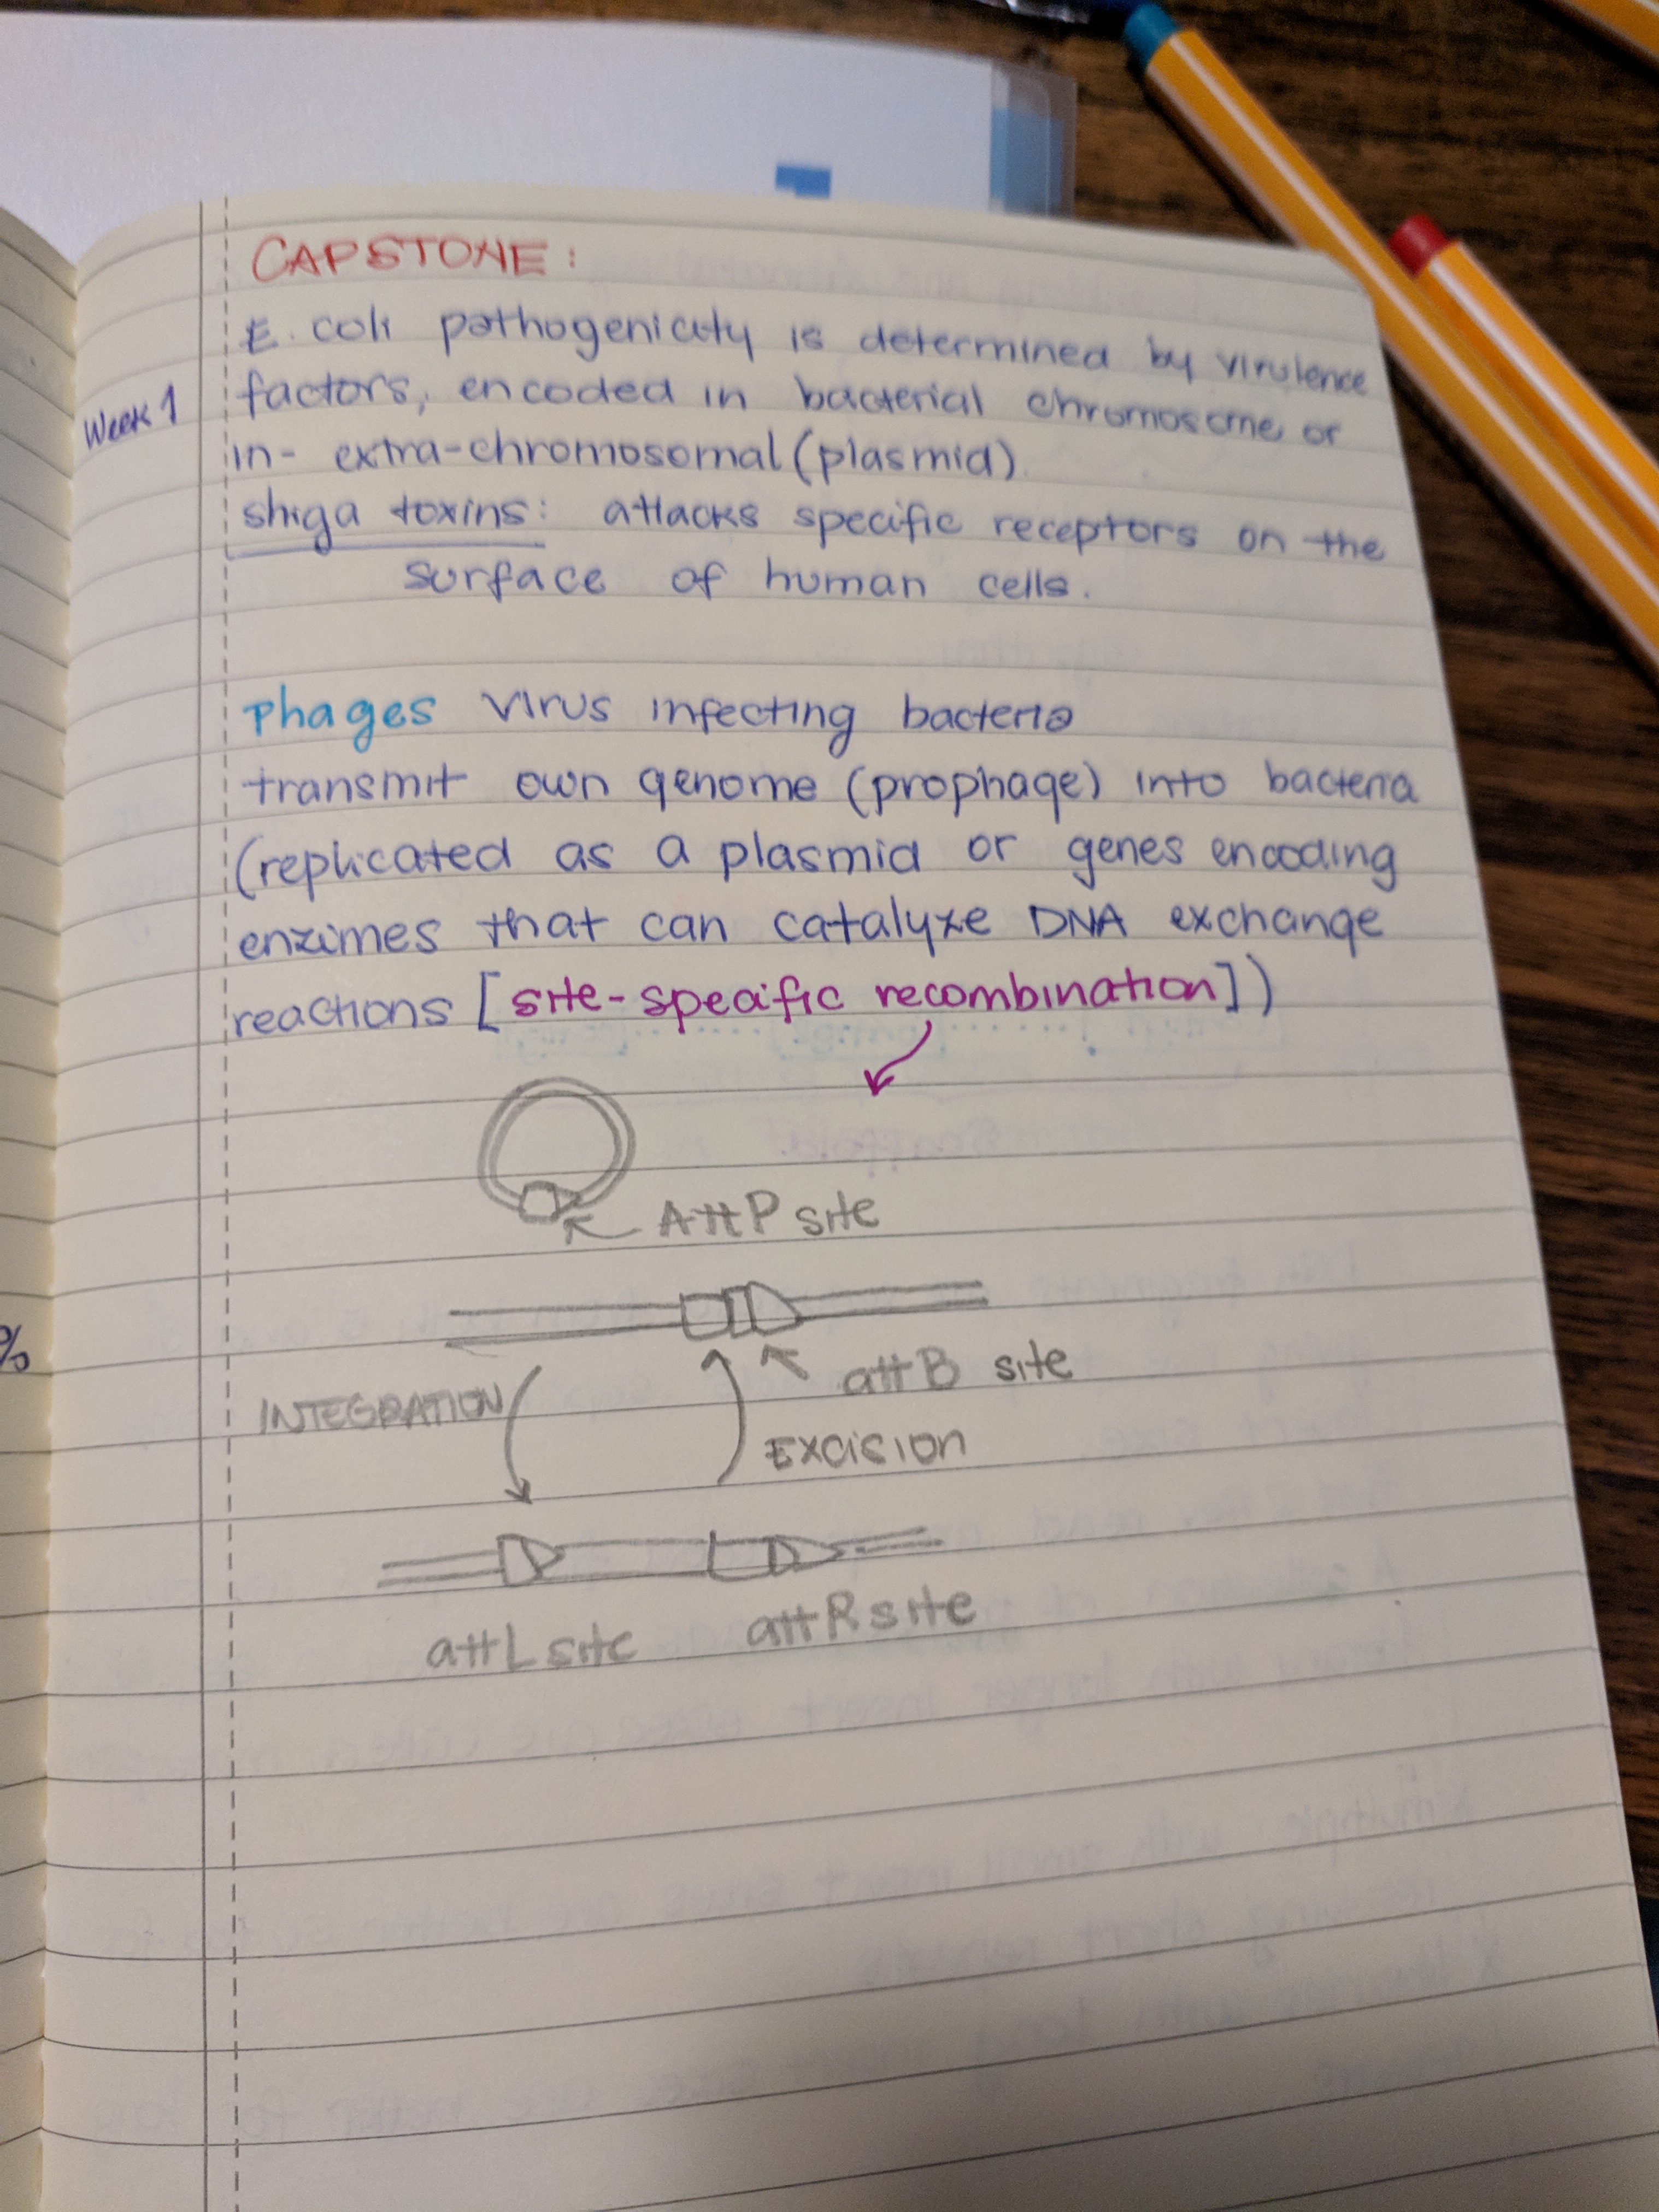 CAPSTONE:
E. coli pathogenicity is determined by virulence
Week 1
factors, encoded in bacterial chromosome or
in- extra-chromosomal (plasmid).
shiga toxins: attacks specific receptors on the
surface of human cells.
Phages virus infecting bacteria
transmit own genome (prophage) into bacteria
(replicated as a plasmid or genes encoding
enzimes that can catalyze DNA exchange
reactions [site-specific recombination])
AttP site
attB site
INTEGRATION
EXCISION
attL site attR site
%